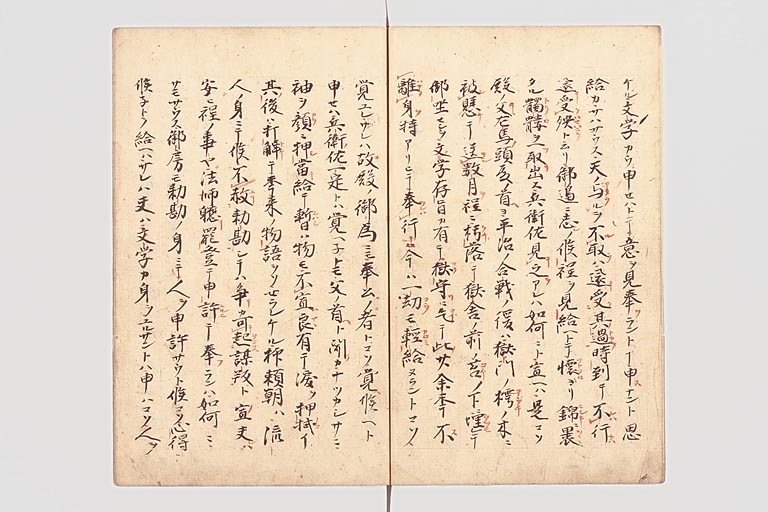 ケル文学カク申セハトテ意ヲ見奉ラントテ申ナント思
給カサハサウス天ノ与ルヲ不取ハ還受其過時到テ不行
還受殃ト云リ御過之候程ヲ見給ヘトテ懐ヨリ錦ニ裹
タル髑髏ヲ取出ス兵衛佐見之アレハ如何ニト宣ヘハ是コソ
殿ノ父左馬頭殿ノ首ヨ平治ノ合戦ノ後ハ獄門ノ樗ノ木ニ
被懸テ送数月程ニ朽落テ獄舎ノ前ノ苔ノ下ニ埋テ
御坐セシヲ文学存旨カ有テ獄守ニ乞テ此廿余年不
離身持アリキテ奉行今ハ一劫モ軽給ヌラントコソ
覚エレサレハ故殿ノ御為ニモ奉公ノ者トコソ覚候ヘト
申セハ兵衛佐一定トハ覚ヘネトモ父ノ首ト聞カナツカシサニ
袖ヲ顔ニ押当給テ暫ハ物モ不宣良有テ涙ヲ押拭イ
其後ハ打解テ委来ノ物語ヲソセラレケル抑頼朝ハ流
人ノ身ニテ候不赦勅勘シテハ争カ可起謀叛ト宣ヘハ
安キ程ノ事ヤ法師聴罷登テ申許テ奉ラン如何ニ
サモサウス御房モ勅勘ノ身ニテ人ヲ申許サウト候コソ心得
候ネトノ給ヘハサレハ夫ハ文学カ身ヲユルサントハ申ハコソ人ヲ